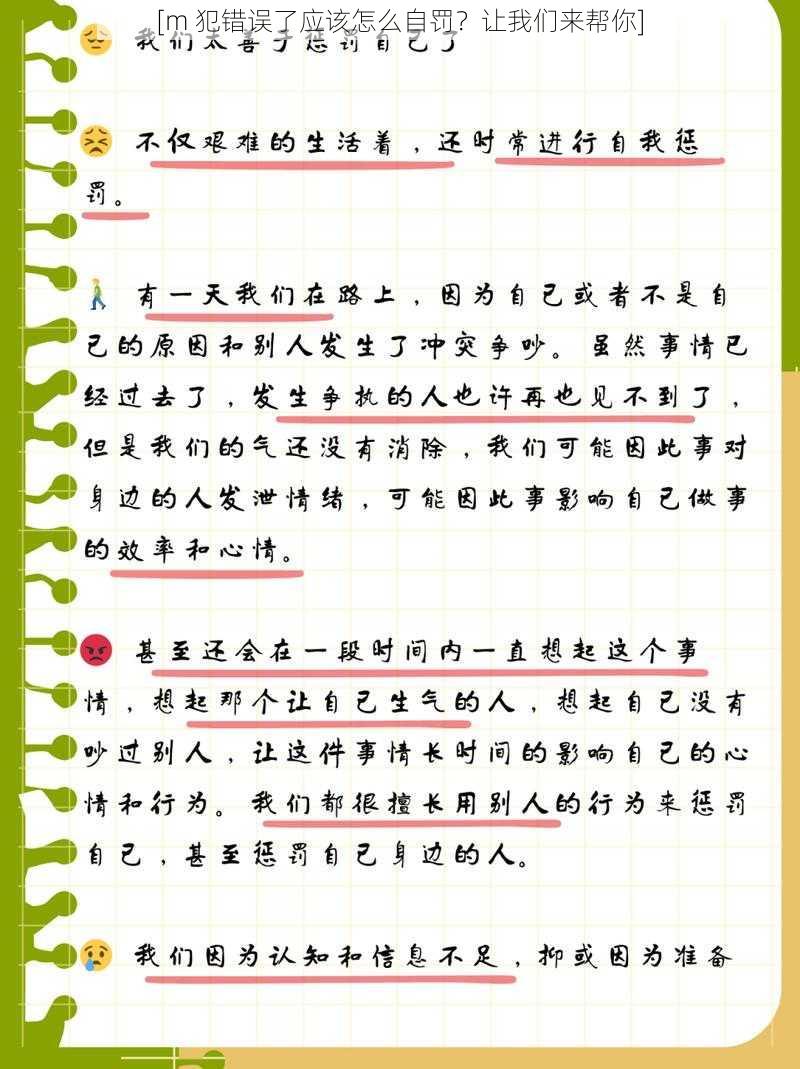 [m 犯错误了应该怎么自罚？让我们来帮你]
我们太善于惩罚自己了
不仅艰难的生活着，还时常进行自我惩
罚。
有一天我们在路上，因为自己或者不是自
己的原因和别人发生了冲突争吵。虽然事情已
经过去了，发生争执的人也许再也见不到了，
但是我们的气还没有消除，我们可能因此事对
身边的人发泄情绪，可能因此事影响自己做事
的效率和心情。
甚至还会在一段时间内一直想起这个事
情，想起那个让自己生气的人，想起自己没有
吵过别人，让这件事情长时间的影响自己的心
情和行为。我们都很擅长用别人的行为来惩罚
自己，甚至惩罚自己身边的人。
我们因为认知和信息不足，抑或因为准备